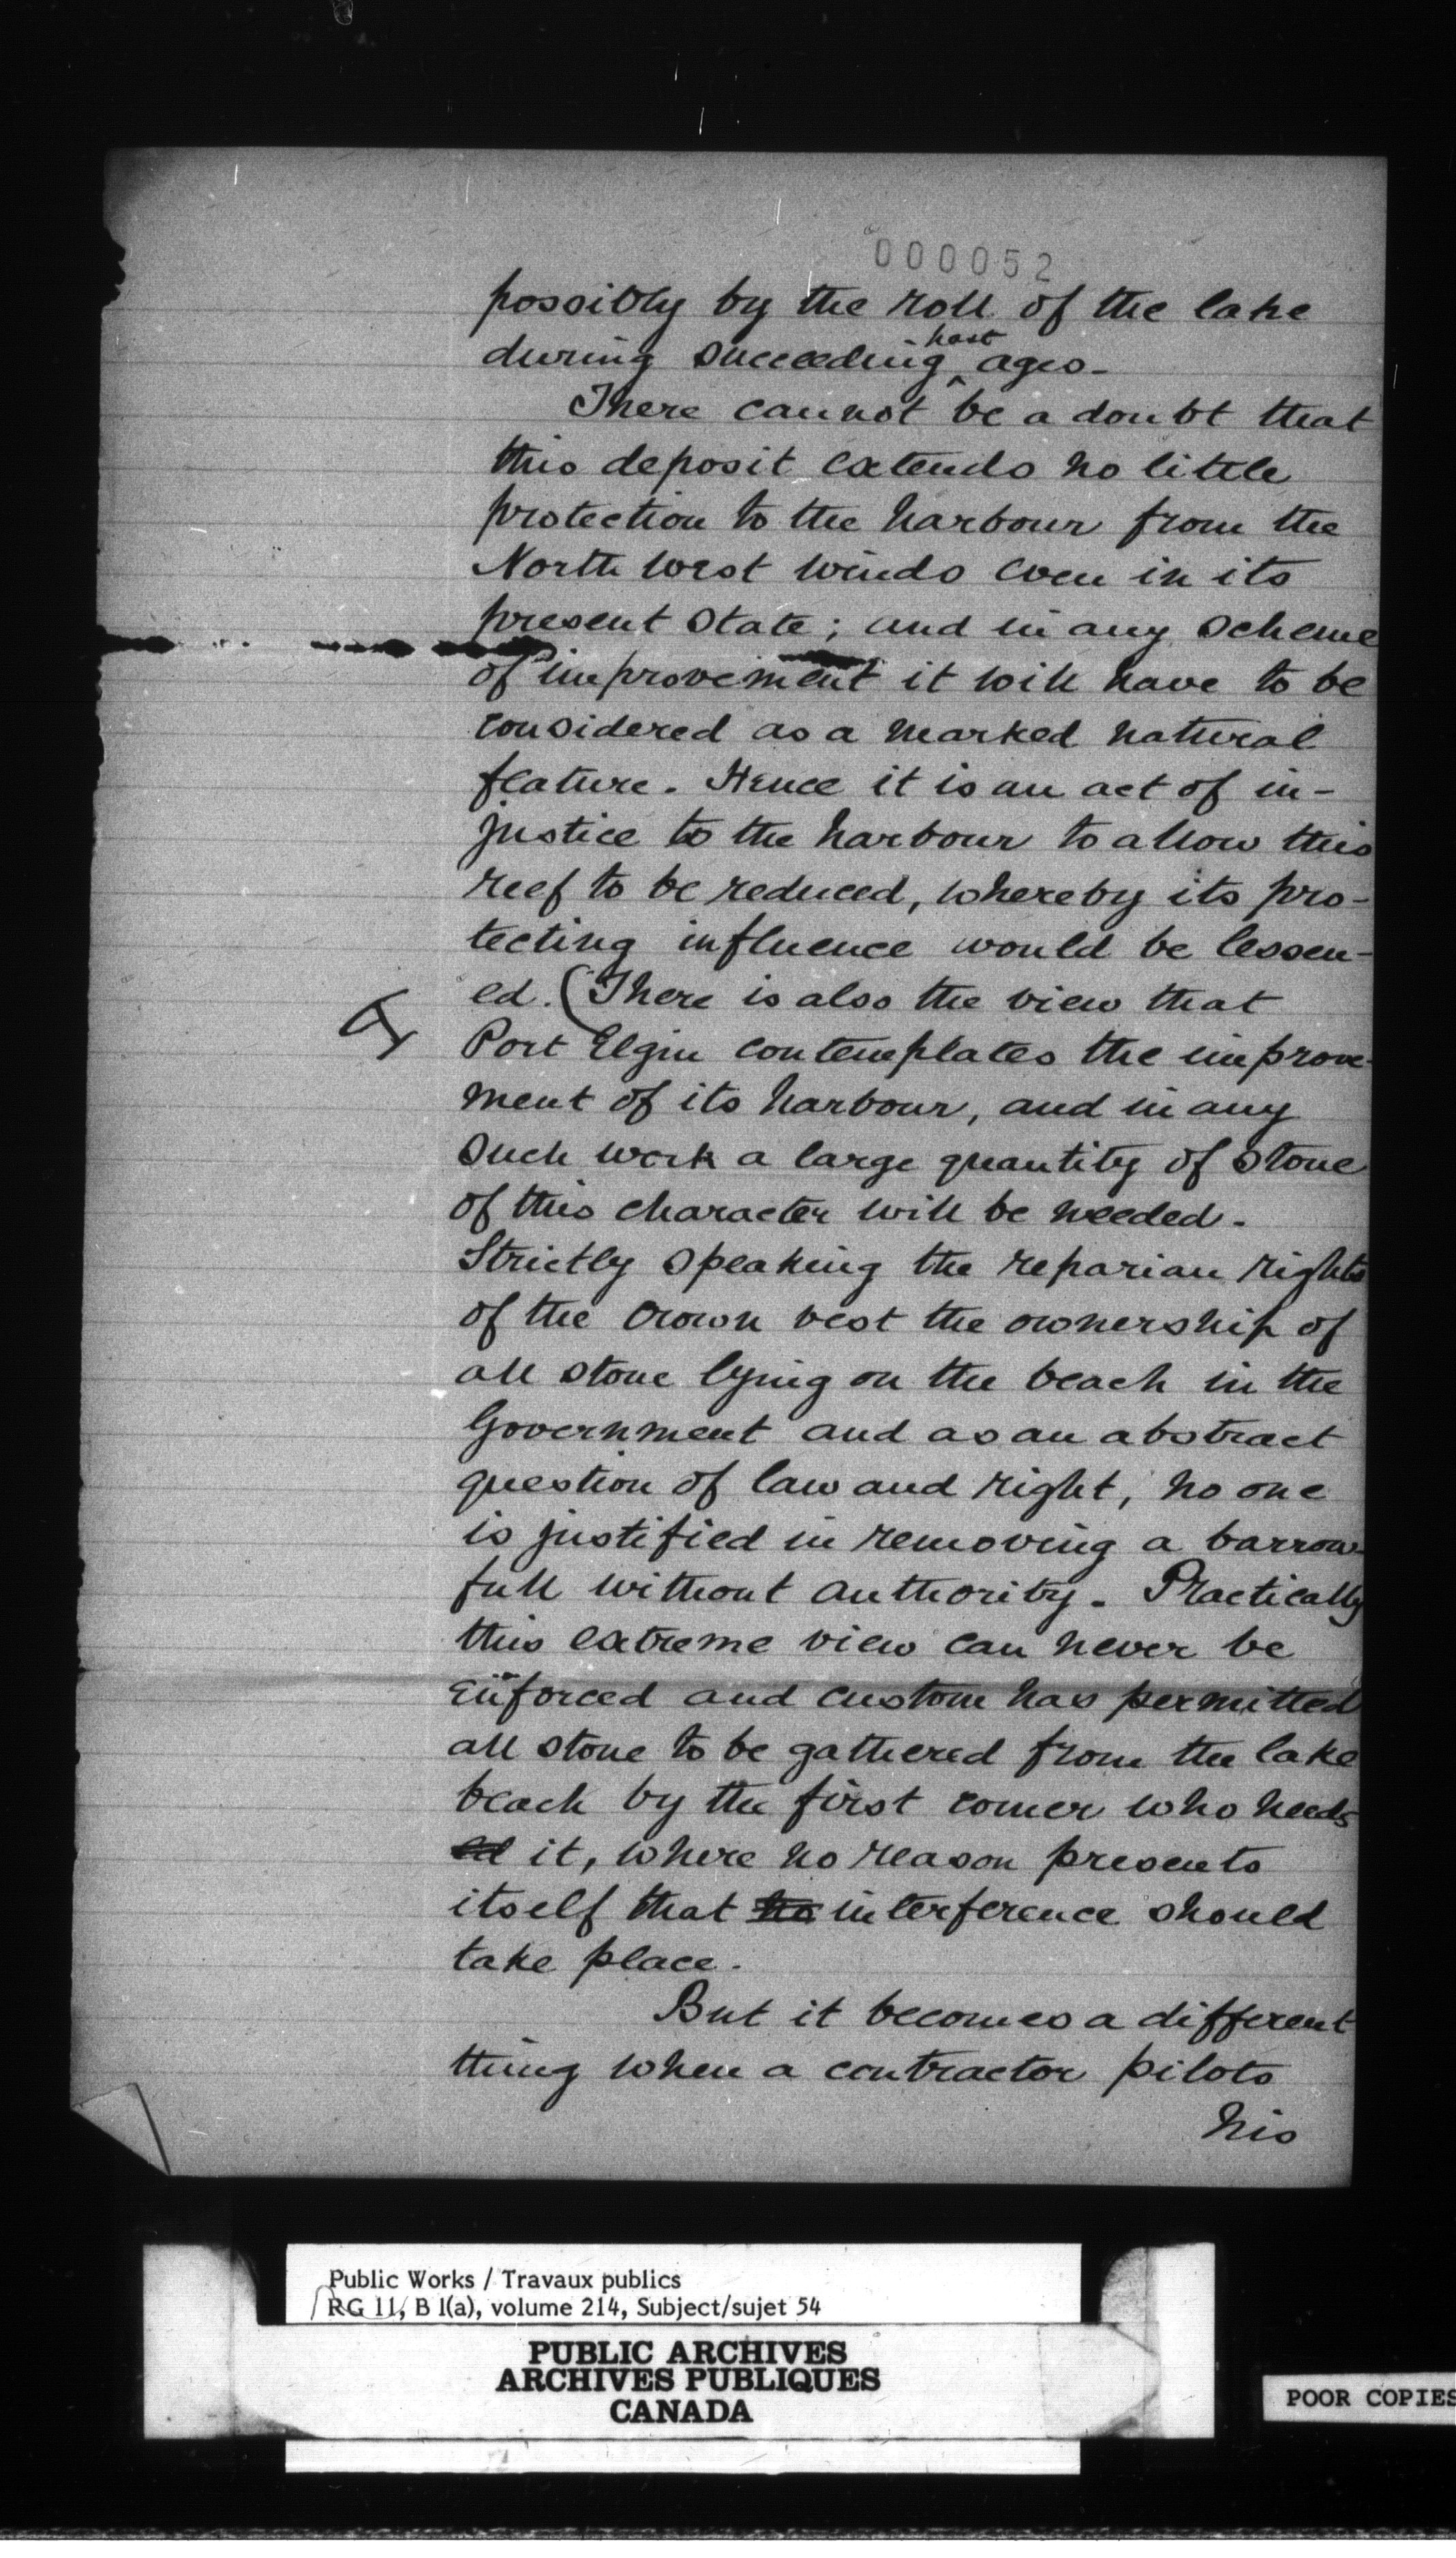 000052
possibly by the roll of the lake
during succeeding past ages -
There cannot be a doubt that
this deposit extends no little
protection to the harbour from the
North West winds even in its
present state; and in any scheme
of improvement it will have to be
considered as a marked natural
feature. Hence it is an act of in-
justice to the harbour to allow this
reef to be reduced, whereby its pro-
tecting influence would be lessen-
ed. (There is also the view that
Port Elgin contemplates the improve-
ment of its harbour, and in any
such work a large quantity of stone
of this character will be needed.
Strictly speaking the reparian rights
of the Crown vest the ownership of
all stone lying on the beach in the
Government and as an abstract
question of law and right, no one
is justified in removing a barrow-
full without authority. Practically
this extreme view can never be
enforced and custom has permitted
all stone to be gathered from the lake
beach by the first comer who needs
ed it, where no reason presents
itself that no interference should
take place.
But it becomes a different
thing when a contractor pilots
his
Public Works / Travaux publics
RG 11, B 1(a), volume 214, Subject/sujet 54
PUBLIC ARCHIVES
ARCHIVES PUBLIQUES
CANADA
POOR COPIES